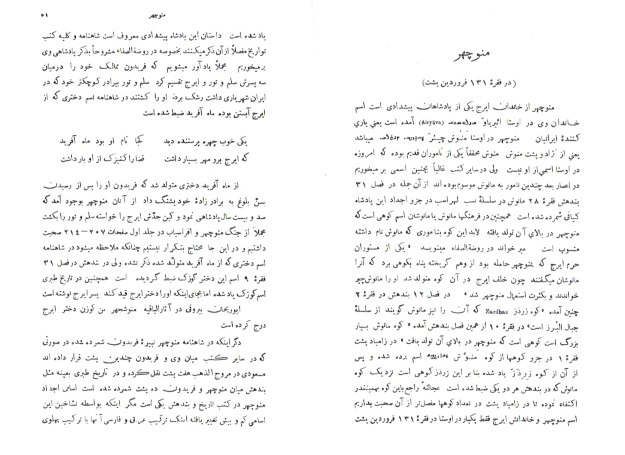 منوچهر
(در فقرهٔ ۱۳۱ فروردین یشت)
منوچهر از خاندان ایرج یکی از پادشاهان پیشدادی است اسم
خاندان وی در اوستا ائیریاوَ (Airyāva) آمده است یعنی یاری
کنندهٔ ایرانیان منوچهر در اوستا مَنوش چیثْرَ میباشد
یعنی از نژاد و پشت منوش منوش محققاً یکی از ناموران قدیم بوده که امروزه
در اوستا اسمی از او نیست ولی در سایر کتب غالباً بچنین اسمی بر میخوریم
در اعصار بعد چندین نامور به مانوش موسوم بوده اند از آن جمله در فصل ۳۱
بندهش فقرهٔ ۲۸ مانوش در سلسلهٔ نسب لهراسب در جزو اجداد این پادشاه
کیانی شمرده شده است همچنین در فرهنگها مانوش یا مانوشان اسم کوهی است که
منوچهر در بالای آن تولد یافته لابد این کوه بنا موری که مانوش نام داشته
منسوب است میر خواند در روضة الصفاء مینویسد «یکی از مستوران
حرم ایرج که بمنوچهر حامله بود از وهم گریخته پناه بکوهی برد که آنرا
مانوشان میگفتند چون خلف ایرج در آن کوه متولد شد او را مانوش چهر
خواندند و بکثرت استعمال منوچهر شد» در فصل ۱۲ بندهش در فقرهٔ ۲
چنین آمده «کوه زردَز Zardhaz که آن را نیز مانوش گویند از سلسلهٔ
جبال البرز است» در فقرهٔ ۱۰ از همین فصل بندهش آمده «کوه مانوش بسیار
بزرگ است کوهی است که منوچهر در بالای آن تولد یافت» در زامیاد یشت
فقرهٔ ۱ در جزو کوهها از کوه منوش اسم برده شده و پس
از آن از کوه زِرِذَزَ یاد شده بنا بر این زردَز کوهی است نزدیک کوه
مانوش که در بندهش هر دو یکی ضبط شده است عجالةً راجع باین کوه بهمین‌قدر
اکتفاء نموده تا در زامیاد یشت در تعداد کوهها مفصل‌تر از آن صحبت بداریم
اسم منوچهر و خاندانش ایرج فقط یکبار در اوستا در فقرهٔ ۱۳۱ فروردین یشت
منوچهر ۵۱
یاد شده است داستان این پادشاه پیشدادی معروف است شاهنامه و کلیه کتب
تواریخ مفصلاً از آن ذکر میکنند بخصوصه در روضة الصفاء مشروحاً بذکر پادشاهی وی
بر میخوریم مجملاً یاد آور میشویم که فریدون ممالک خود را درمیان
سه پسرش سلم و تور و ایرج تقسیم کرد سلم و تور ببرادر کوچکتر خود که در
ایران شهریاری داشت رشک برده او را کشتند در شاهنامه اسم دختری که از
ایرج آبستن بوده ماه آفرید ضبط شده است
یکی خوب چهره پرستنده دید کجا نام او بود ماه آفرید
که ایرج برو مهر بسیار داشت قضا را کنیزک از او بار داشت
از ماه آفرید دختری متولد شد که فریدون او را پس از رسیدن
بسن بلوغ به برادر زادهٔ خود پشنگ داد از آنان منوچهر بوجود آمد که
صد و بیست سال پادشاهی نمود و کین جدّش ایرج را خواسته سلم و تور را بکشت
مجملاً از جنگ منوچهر و افراسیاب در جلد اول صفحات ۲۰۷-۲۱۴ صحبت
داشتیم و در این جا محتاج بتکرار نیستیم چنانکه ملاحظه میشود در شاهنامه
اسم دختری که از ماه آفرید متولد شده ذکر نشده ولی در بندهش در فصل ۳۱
فقرهٔ ۹ اسم این دختر گوزک ضبط گردیده است همچنین در تاریخ طبری
اسم کوزک یاد شده اما بجای اینکه او را دختر ایرج قید کند پسر ایرج نوشته است
ابوریحان بیرونی در آثار الباقیه منوشجهر بن کوزن دختر ایرج
درج کرده است
دگر اینکه در شاهنامه منوچهر نبیرهٔ فریدون شمرده شده در صورتی
که در سایر کتب میان وی و فریدون چندین پشت قرار داده اند
مسعودی در مروج الذهب هفت پشت نقل کرده و در تاریخ طبری بعینه مثل
بندهش میان منوچهر و فریدون ده پشت شمرده شده است اسامی اجداد
منوچهر در کتب تاریخ و بندهش یکی است مگر اینکه بواسطه نشاختن این
اسامی کم و بیش تغییر یافته اینک ترکیب عربی و فارسی آنها با ترکیب پهلوی